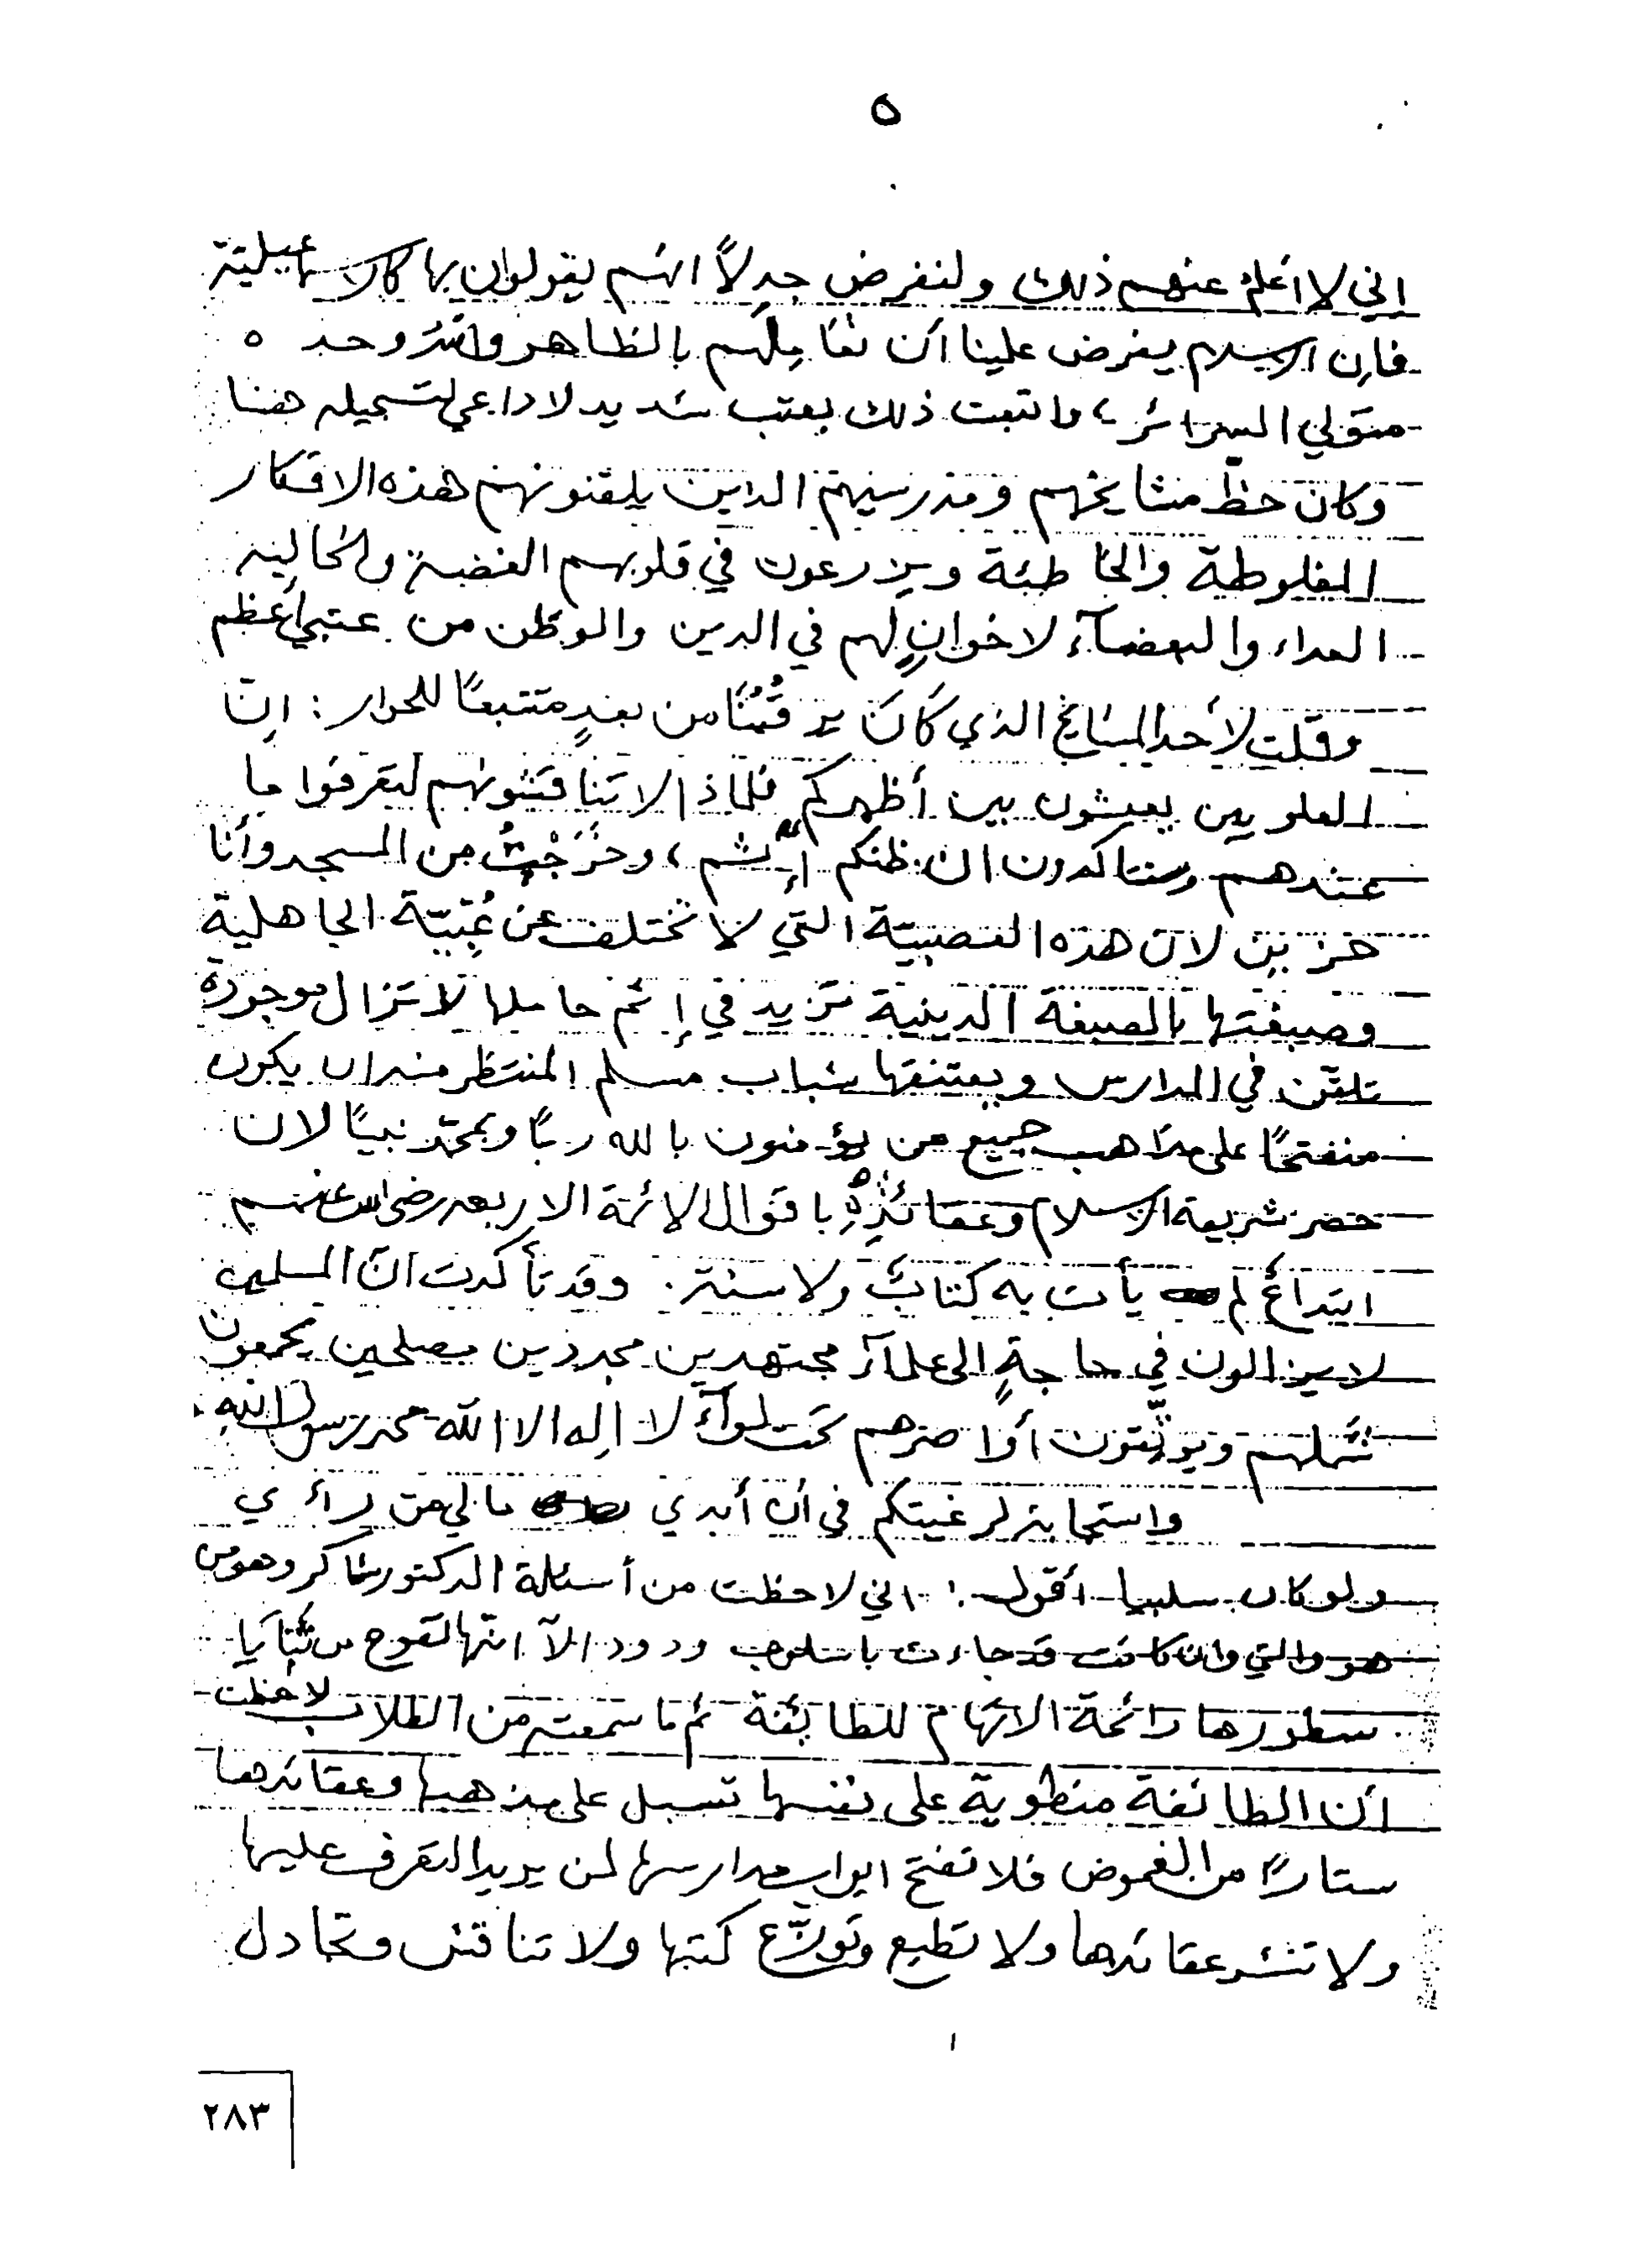 ٥
اني لا اعلم عنهم ذلك ولنفرض جدلاً انهم يقولون بها كالاسماعيلية
فإن الإسلام يفرض علينا أن نعاملهم بالظاهر والله وحده
متولي السرائر، واتبعت ذلك بعتب شديد لا داعي لتسجيله هنا
وكان حظ مشايخهم ومدرسيهم الذين يلقنونهم هذه الافكار
المغلوطة والخاطئة ويزرعون في قلوبهم
العداء والبغضآء لاخوانٍ لهم في الدين والوطن من عتبي أعظم
وقلت لأحد المشايخ الذي كان يرقُبُنَا من بعدٍ متتبعاً للحوار: إن
العلويين يعيشون بين أظهركم فلماذا لا تناقشونهم لتعرفوا ما
عندهم وستتأكدون ان ظنكم إثم، وخَرَجْتُ من المسجد وأنا
حزين لان هذه العصبيّة التي لا تختلف عن عُبّيّة الجاهلية
وصبغتها بالصبغة الدينية تزيد في إثم حاملها لا تزال موجودة
تلقّن في المدارس ويعتنقها شباب مسلم المنتظر منه ان يكون
منفتحاً على مذاهب جميع من يؤمنون بالله رباً وبمحمّد نبياً لان
حصر شريعة الاسلام وعقائدِهِ باقوال الائمة الاربعه رضي الله عنهم
ابتداعٌ لم يأت به كتابٌ ولا سنة. وقد تأكدت انّ المسلمين
لا يزالون في حاجةٍ الى علمآء مجتهدين مجددين مصلحين يجمعون
شملهم ويوثّقون أواصرهم تحت لوآء لا اله الا الله محمد رسول الله
واستجابة لرغبتكم في أن أبدي ما لي من رأي
ولو كان سلبيا أقول: اني لاحظت من أسئلة الدكتور شاكر وهو من
هو والتي وان كانت قد جاءت باسلوب ودود الاّ انها تفوح من ثنايا
سطورها رائحة الاتهام للطائفة ثم ما سمعته من الطلاب لاحظت
أن الطائفة منطوية على نفسها تسبل على مذهبها وعقائدها
ستاراً من الغموض فلا تفتح ابواب مدارسها لمن يريد التعرف عليها
ولا تنشر عقائدها ولا تطبع وتوزّع كتبها ولا تناقش وتجادل
٢٨٣